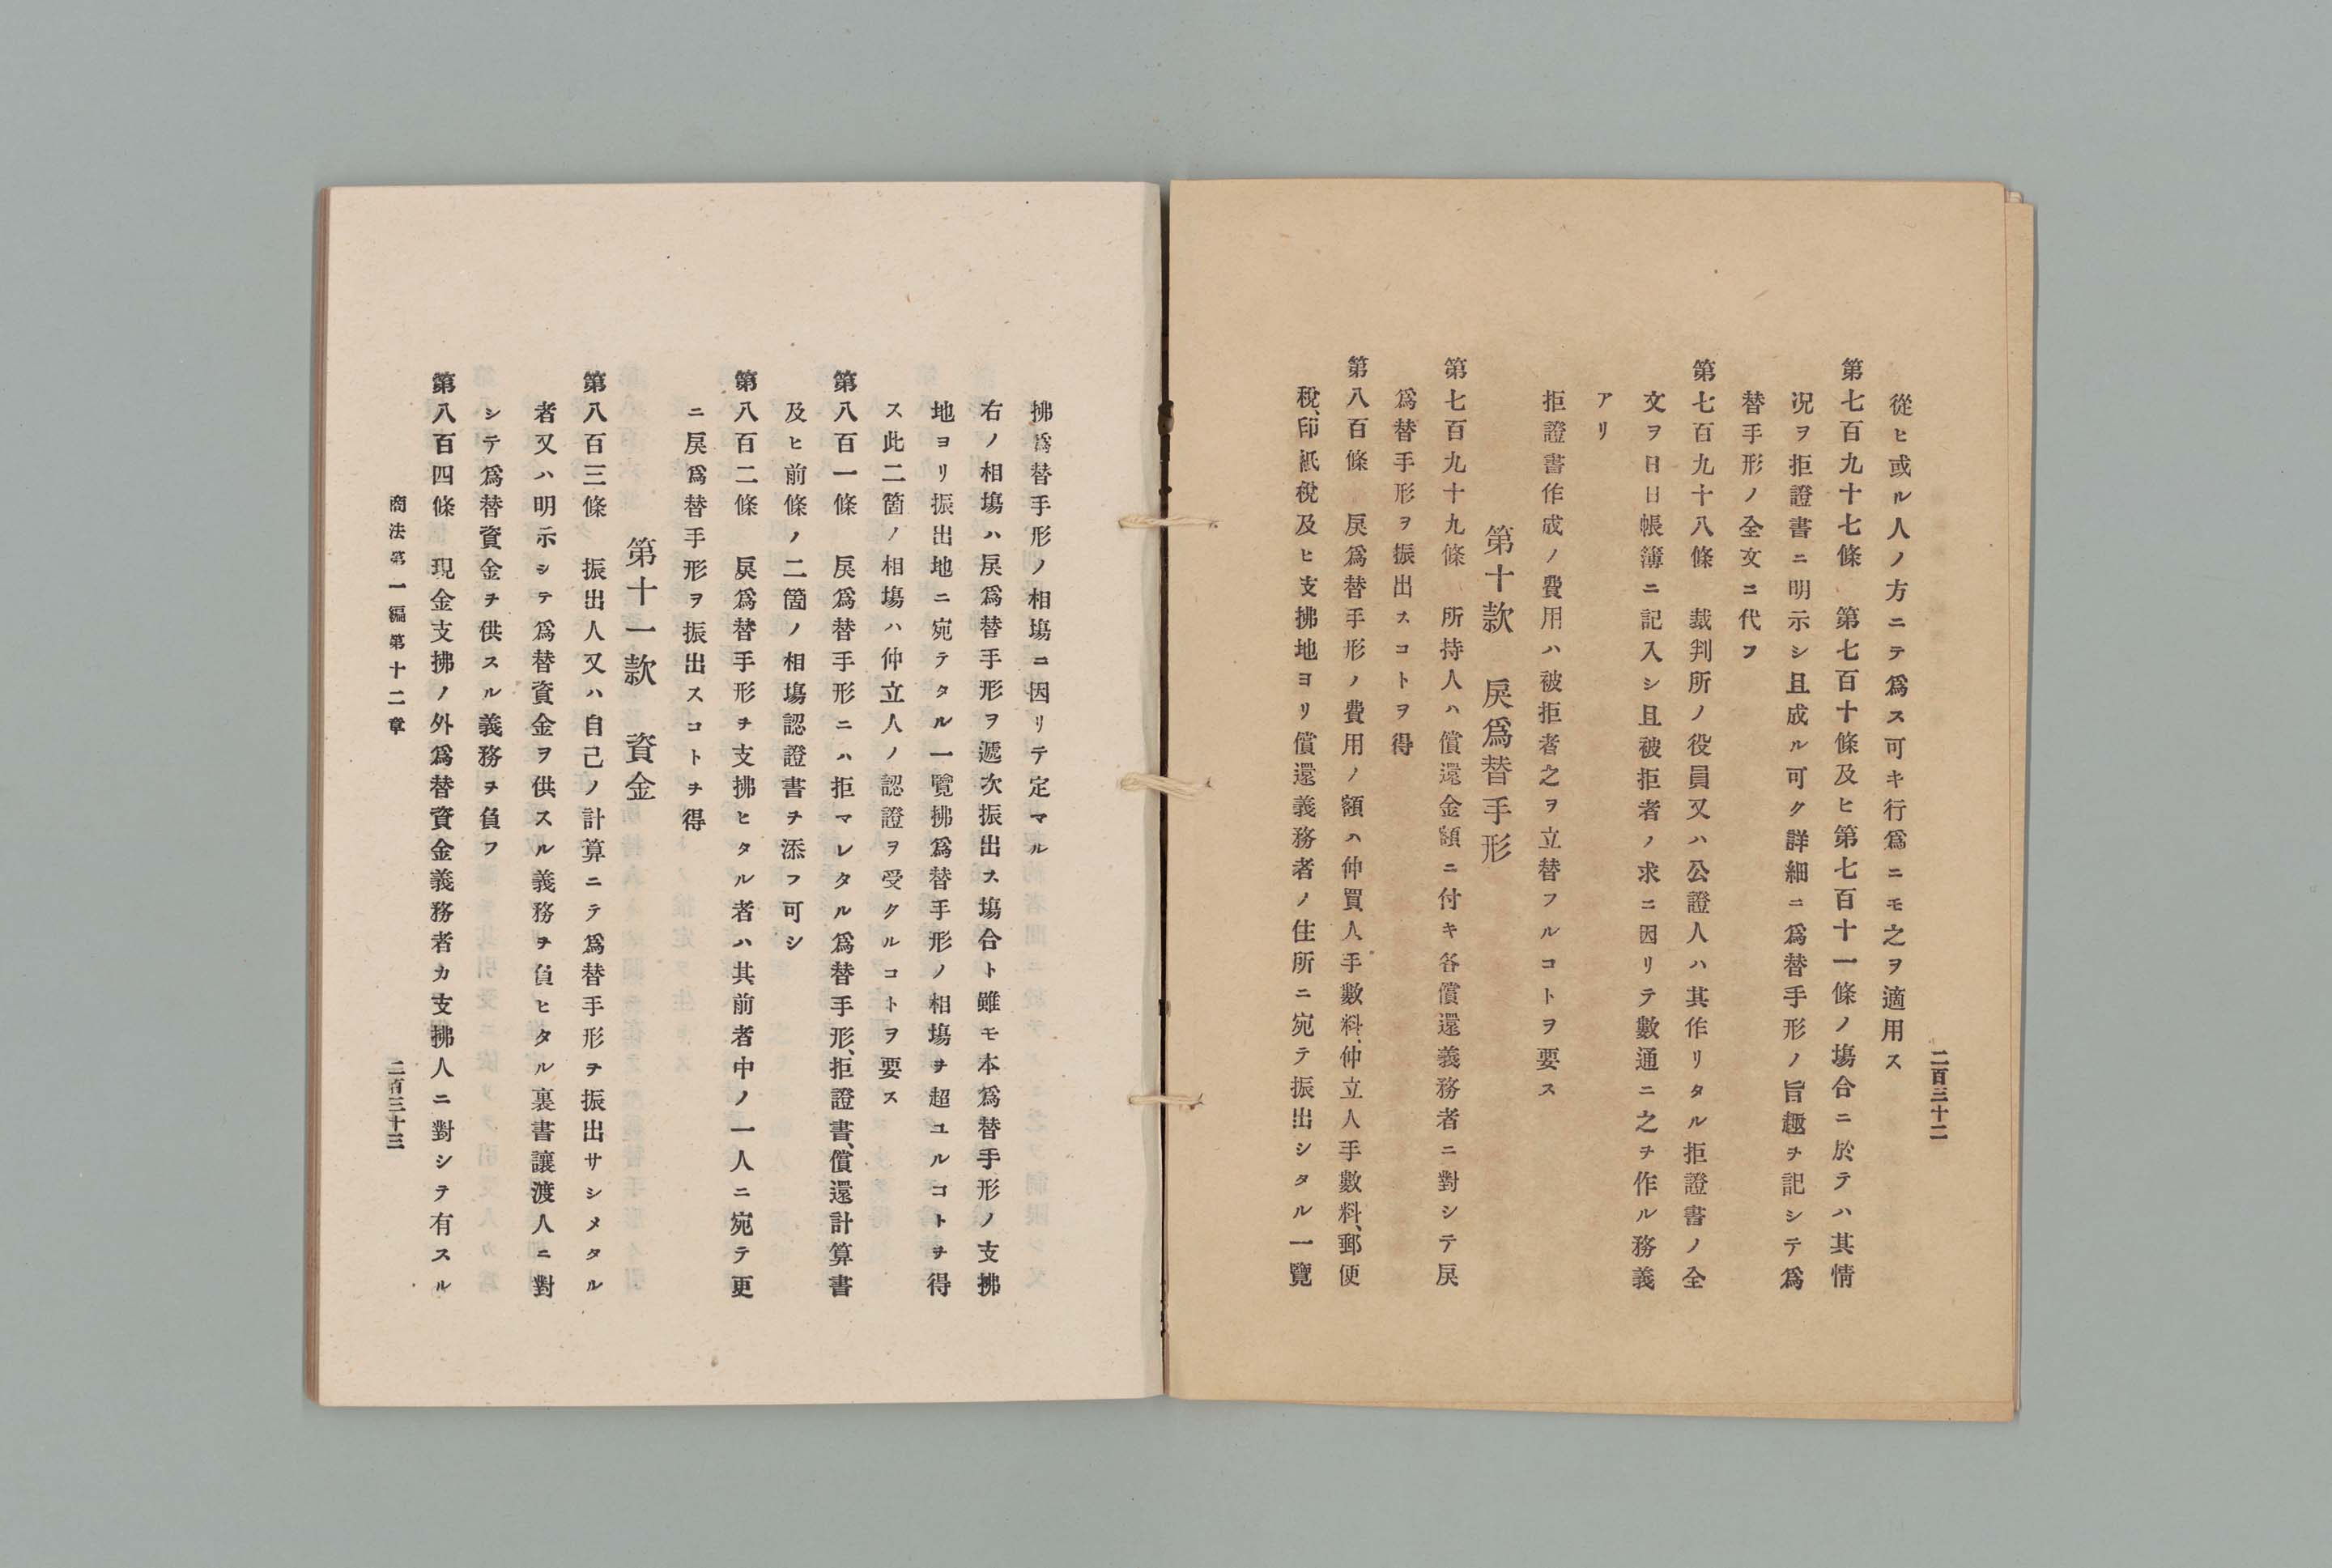 二百三十二
從ヒ或ル人ノ方ニテ爲ス可キ行爲ニモ之ヲ適用ス
第七百九十七條　第七百十條及ヒ第七百十一條ノ塲合ニ於テハ其情
况ヲ拒證書ニ明示シ且成ル可ク詳細ニ爲替手形ノ旨趣ヲ記シテ爲
替手形ノ全文ニ代フ
第七百九十八條　裁判所ノ役員又ハ公證人ハ其作リタル拒證書ノ全
文ヲ日日帳簿ニ記入シ且被拒者ノ求ニ因リテ數通ニ之ヲ作ル務義
アリ
拒證書作成ノ費用ハ被拒者之ヲ立替フルコトヲ要ス
第十款　戻爲替手形
第七百九十九條　所持人ハ償還金額ニ付キ各償還義務者ニ對シテ戻
爲替手形ヲ振出スコトヲ得
第八百條　戻爲替手形ノ費用ノ額ハ仲買人手數料、仲立人手數料、郵便
稅、印紙稅及ヒ支拂地ヨリ償還義務者ノ住所ニ宛テ振出シタル一覽
拂爲替手形ノ相塲ニ因リテ定マル
右ノ相塲ハ戻爲替手形ヲ遞次振出ス塲合ト雖モ本爲替手形ノ支拂
地ヨリ振出地ニ宛テタル一覽拂爲替手形ノ相塲ヲ超ユルコトヲ得
ス此二箇ノ相塲ハ仲立人ノ認證ヲ受クルコトヲ要ス
第八百一條　戻爲替手形ニハ拒マレタル爲替手形、拒證書、償還計算書
及ヒ前條ノ二箇ノ相塲認證書ヲ添フ可シ
第八百二條　戻爲替手形ヲ支拂ヒタル者ハ其前者中ノ一人ニ宛テ更
ニ戻爲替手形ヲ振出スコトヲ得
第十一款　資金
第八百三條　振出人又ハ自己ノ計算ニテ爲替手形ヲ振出サシメタル
者又ハ明示シテ爲替資金ヲ供スル義務ヲ負ヒタル裏書讓渡人ニ對
シテ爲替資金ヲ供スル義務ヲ負フ
第八百四條　現金支拂ノ外爲替資金義務者カ支拂人ニ對シテ有スル
商法第一編第十二章
二百三十三